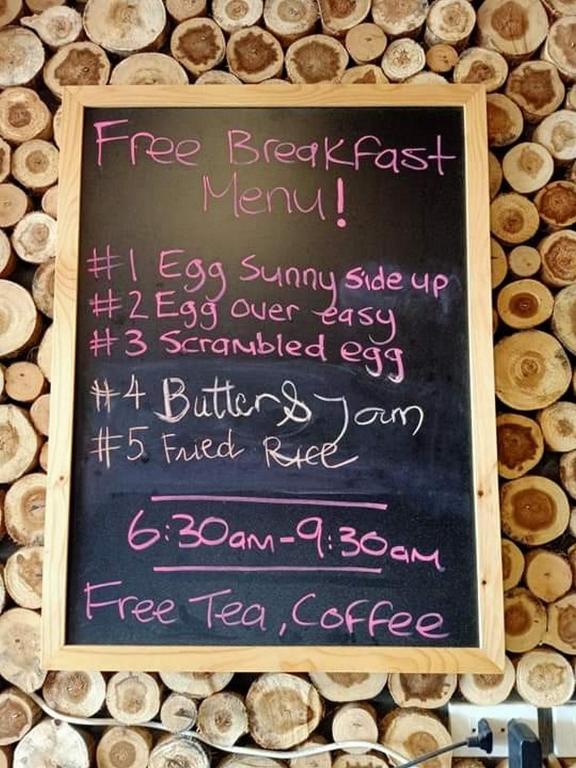 Free Breakfast
Menu!
#1 Egg Sunny side up
#2 Egg over easy
#3 Scrambled egg
#4 Butter & Jam
#5 Fried Rice
6:30am-9:30am
Free Tea, Coffee